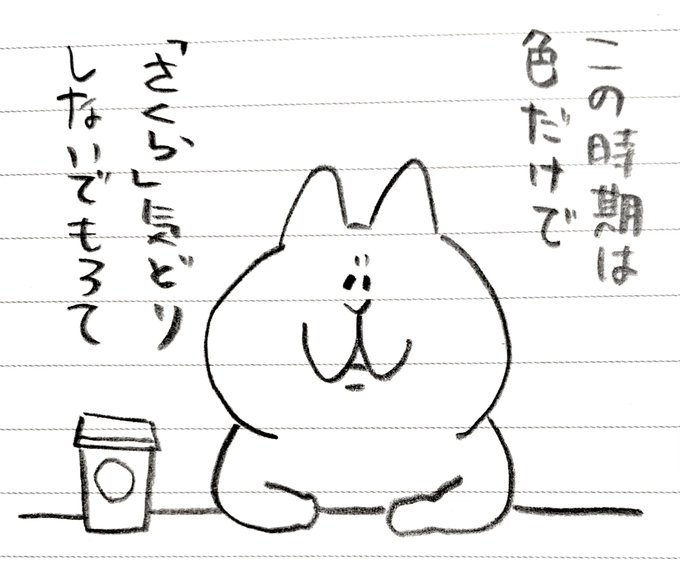 この時期は
色だけで
「さくら」気どり
しないでもろて